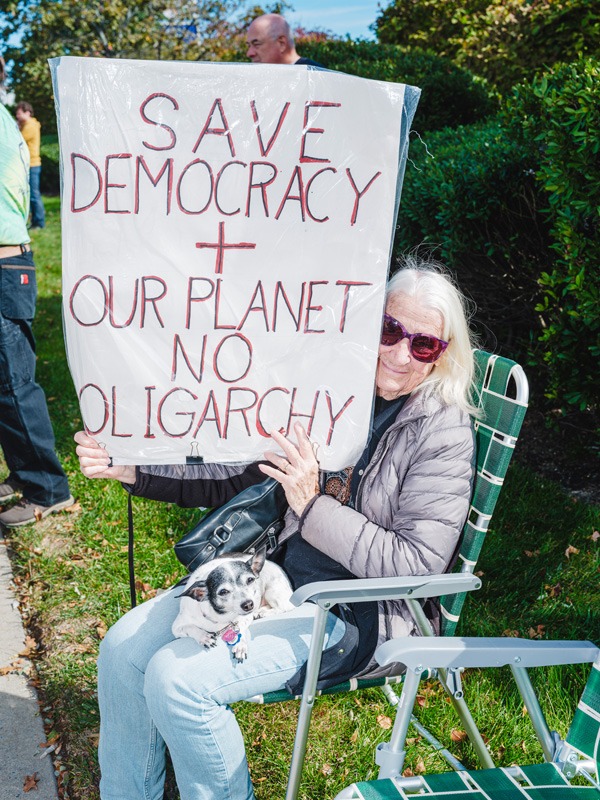 SAVE
DEMOCRACY
+
OUR PLANET
NO
OLIGARCHY